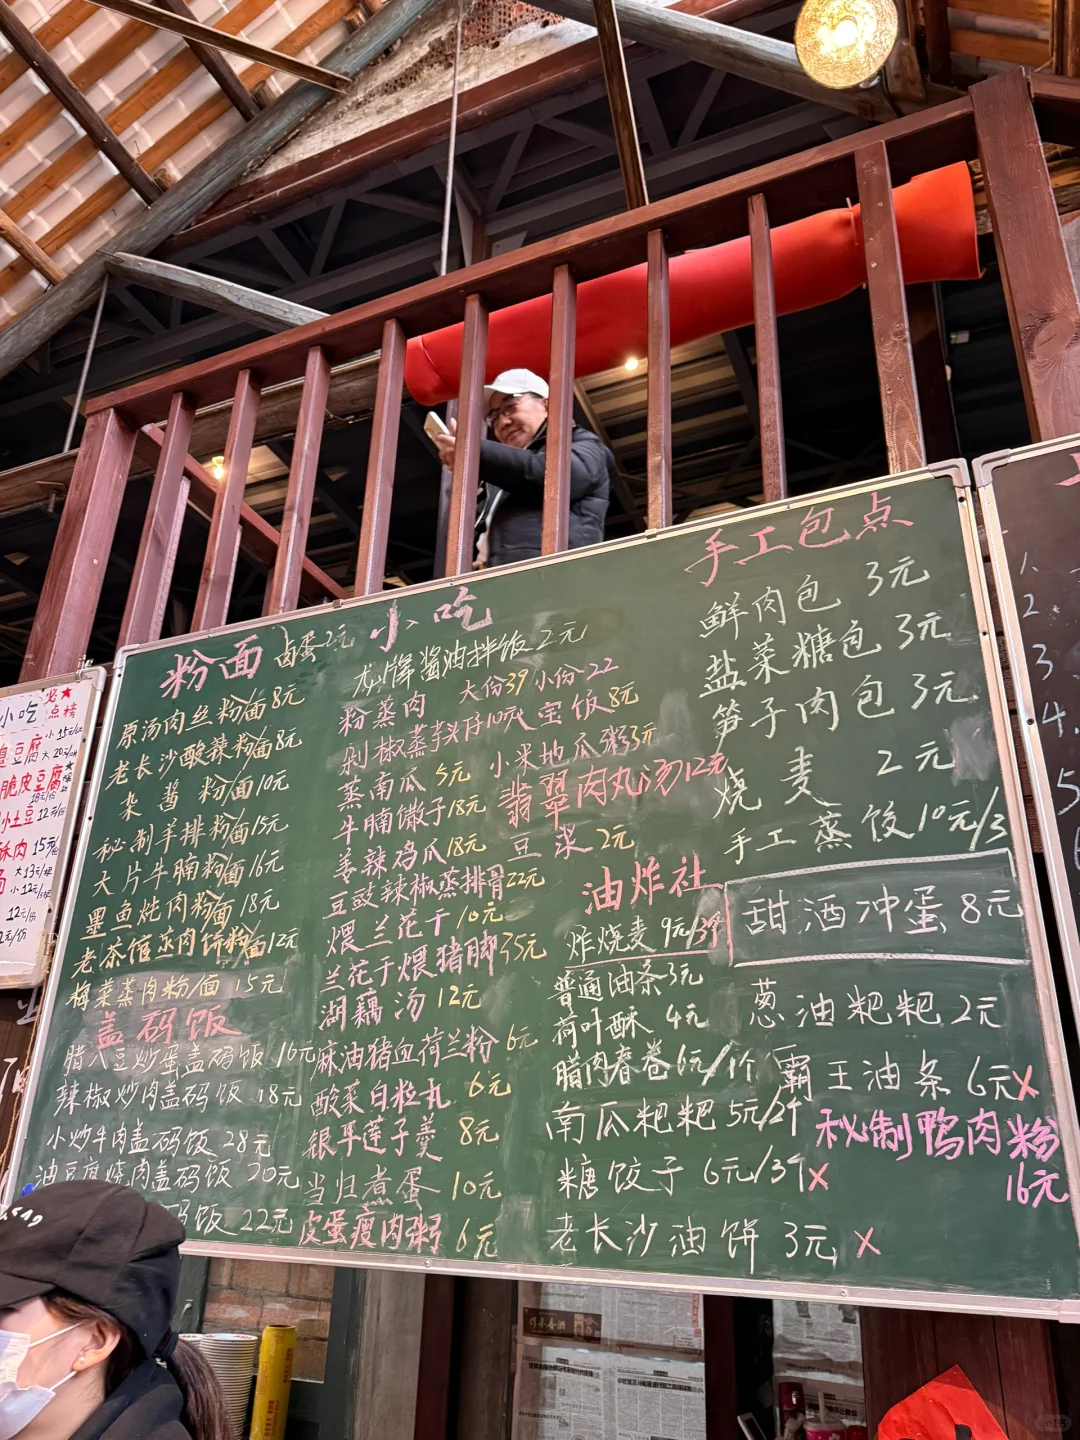 粉面
卤蛋2元
原汤肉丝粉/面8元
老长沙酸辣粉/面8元
杂酱 粉/面10元
秘制羊排粉/面15元
大片牛腩粉/面16元
墨鱼炖肉粉/面18元
老茶馆蒸肉饼粉/面12元
梅菜蒸肉粉/面 15元
盖码饭
腊八豆炒蛋盖码饭 16元
辣椒炒肉盖码饭 18元
小炒牛肉盖码饭 28元
油豆腐烧肉盖码饭 20元
码饭 22元
小吃
龙牌酱油拌饭 2元
粉蒸肉 大份39 小份22
剁椒蒸芋头仔10元
八宝饭8元
蒸南瓜 5元
小米地瓜粥3元
牛腩馓子18元
翡翠肉丸汤12元
姜辣鸡爪18元
豆浆 2元
豆豉辣椒蒸排骨22元
煨兰花干 10元
兰花干煨猪脚35元
湖藕汤 12元
麻油猪血荷兰粉 6元
酸菜白粒丸 6元
银耳莲子羹 8元
当归煮蛋 10元
皮蛋瘦肉粥 6元
手工包点
鲜肉包 3元
盐菜糖包 3元
笋子肉包 3元
烧麦 2元
手工蒸饺10元/3
油炸社
炸烧麦 9元/3个
普通油条3元
荷叶酥 4元
腊肉春卷6元/个
南瓜粑粑 5元/2个
糖饺子 6元/3个x
老长沙油饼 3元 x
甜酒冲蛋8元
葱油粑粑 2元
霸王油条 6元x
秘制鸭肉粉
16元
小吃
必点榜
小15元/份
臭豆腐
脆皮豆腐
18元/份
小土豆 12元/份
酥肉 15元/份
大13元/
小12元/
12元/份
2元/份
1.
2.
3
4.
5